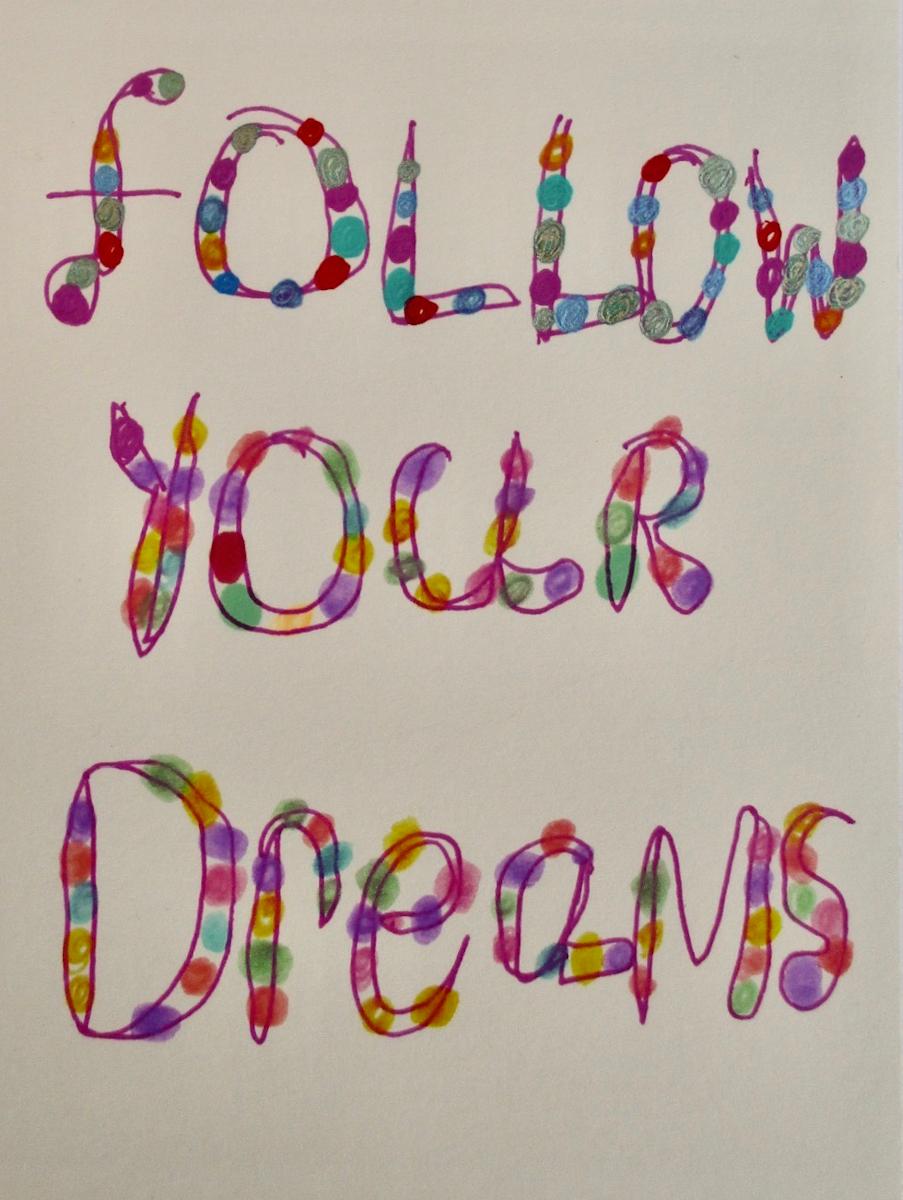 fOLLOW
YOUR
DreaMS